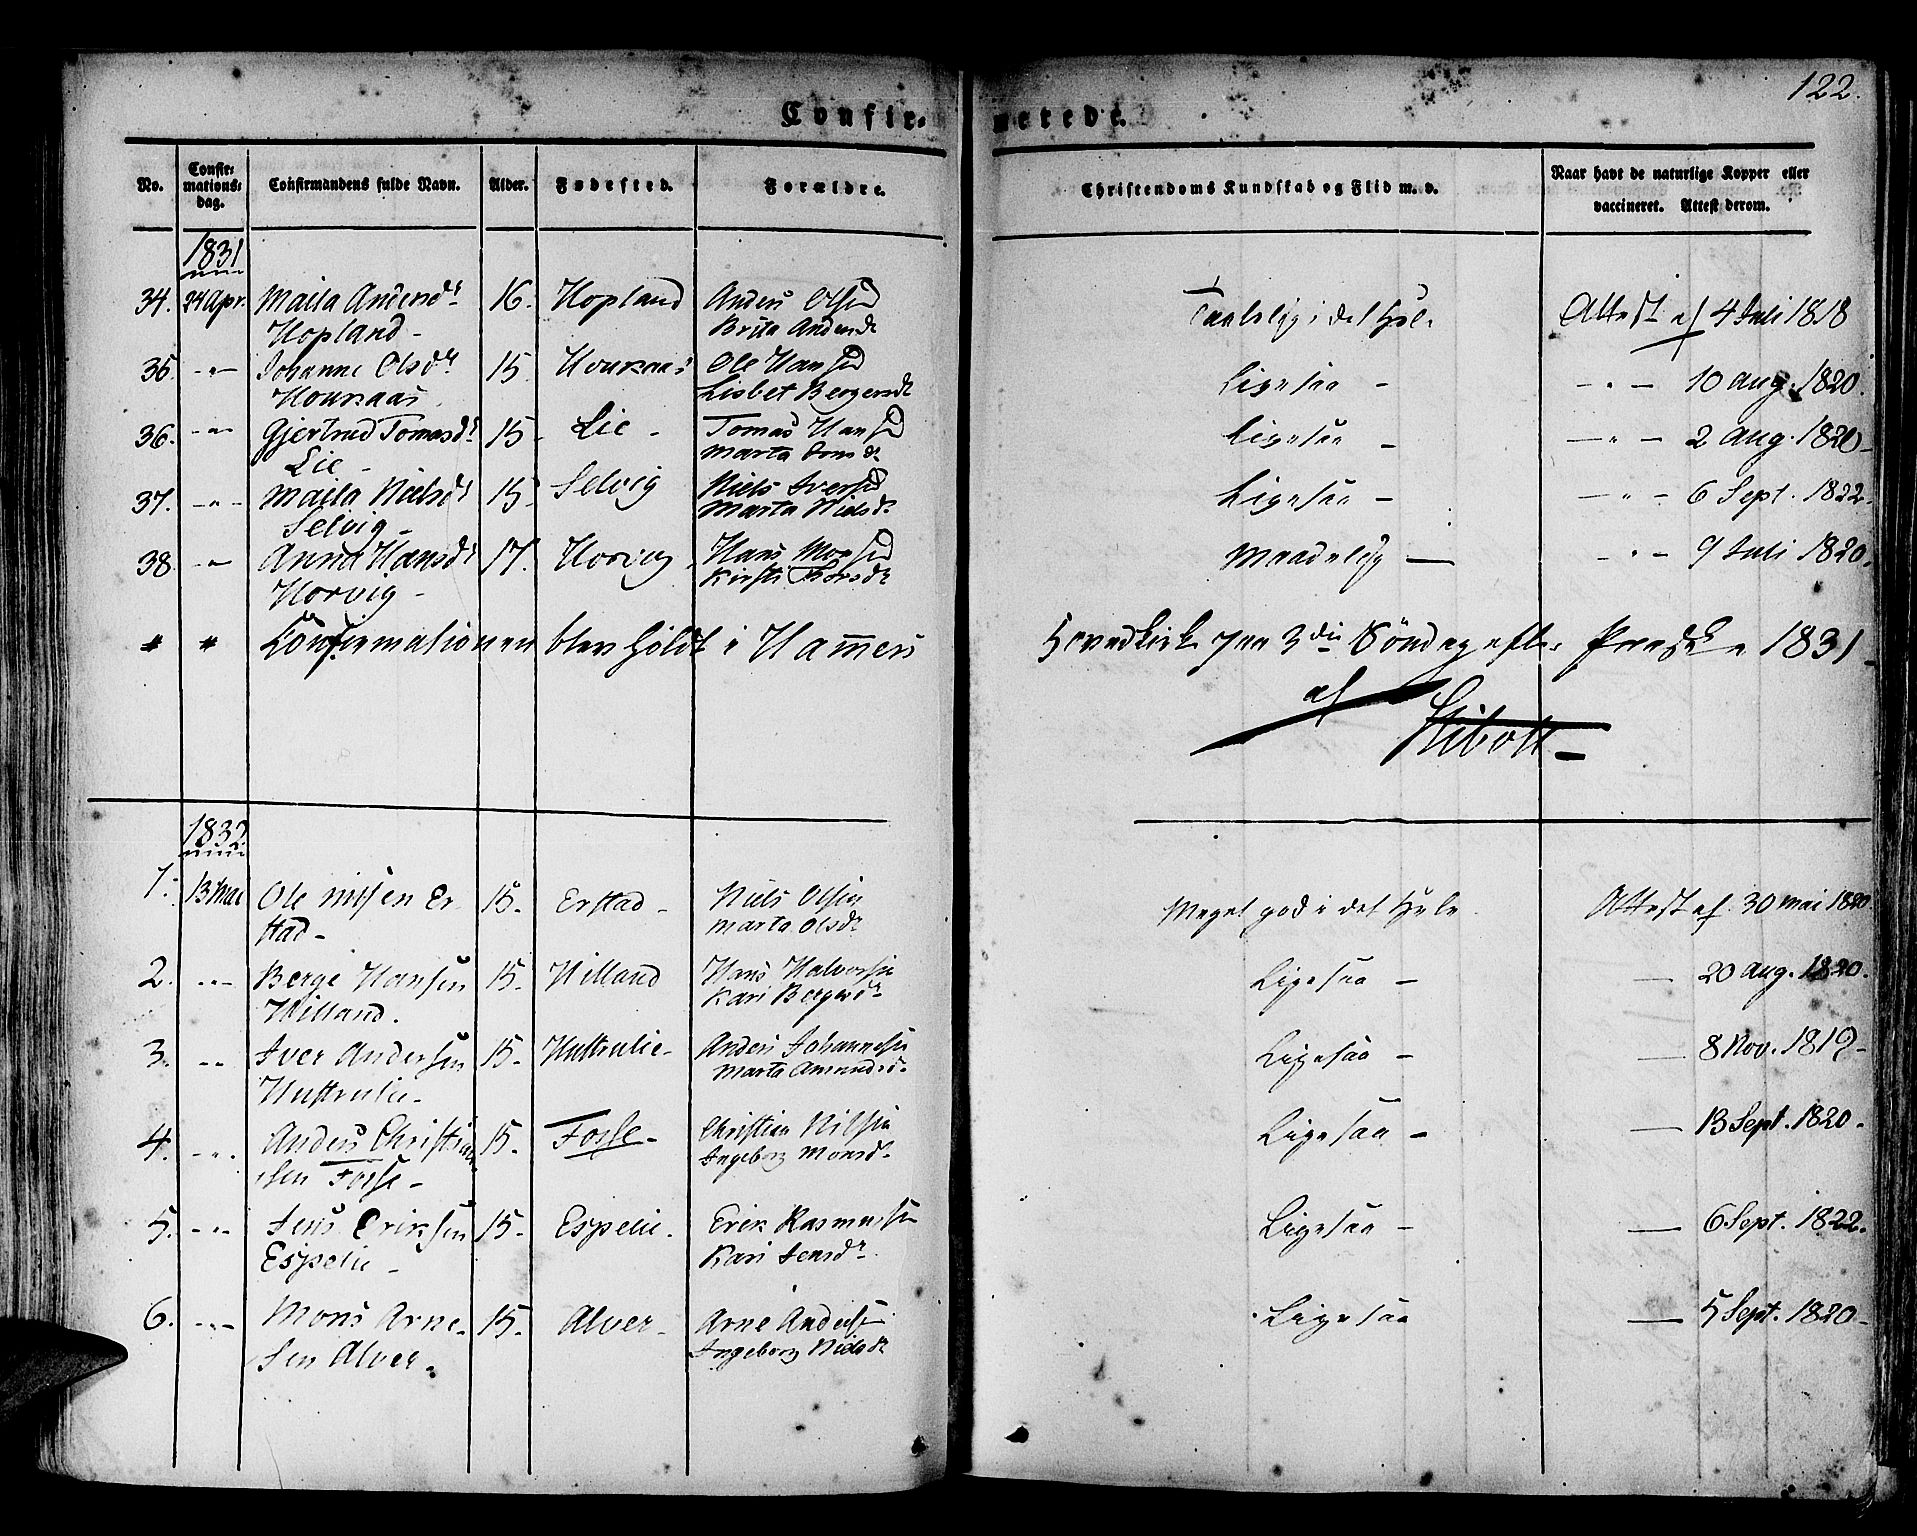 122.
Confir- merede.
No. Confir- mations- dag. Confirmandens fulde Navn. Alder. Fødested. Forældre. Christendoms Kundskab og Flid m. v. Naar havt de naturlige Kopper eller vaccineret. Attest derom.
1831
34. 24 Apr. Marta Andersdr 16. Hopland Anders Olsen Taalelig i det Hele Attest af 4 Juli 1818
Hopland - Brita Andersdr
35. -"- Johanne Olsdr 15. Houkaas Ole Hansen Ligesaa - -"- 10 Aug. 1820.
Houkaas Lisbet Bergersdr
36. -"- Gjertrud Tomasdr 15. Lie - Tomas Hansen Ligesaa - -"- 2 Aug. 1820-
Lie - Marta Jonsdr
37. -"- Marta Nielsdr 15. Selvig Niels Iversen Ligesaa - -"- 6 Sept. 1822-
Selvig - Marta Nielsdr
38. -"- Anna Hansdr 17. Horvig Hans Monsen Maadelig - -"- 9 Juli 1820.
Horvig - Kirsti Thorsdr
Confirmationen blev holdt i Hammers Hovedkirke paa 3die Søndag efter Paaske 1831-
af Stibolt-
1832
1. 13 Mai Ole Nilsen Er- 15. Erstad - Niels Olsen Meget god i det Hele Attest af 30 Mai 1820
stad - Marta Olsdr
2. -"- Berge Hansen 15. Hilland Hans Halvorsen Ligesaa - - 20 Aug. 1820.
Hilland. Kari Bergersdr
3. -"- Iver Andersen 15. Hustrulie - Anders Johannesen Ligesaa - - 8 Nov. 1819-
Hustrulie - Marta Amundsd.
4. -"- Anders Christian- 15. Fosse - Christian Nilsen Ligesaa - - 13 Sept. 1820.
sen Fosse - Ingeborg Monsd.
5. -"- Jens Eriksen 15. Espelie. Erik Rasmussen Ligesaa - - 6 Sept. 1822.
Espelie - Kari Jensdr
6. -"- Mons Arne- 15. Alver - Arne Andersen Ligesaa - 5 Sept. 1820-
sen Alver. Ingeborg Nielsdr